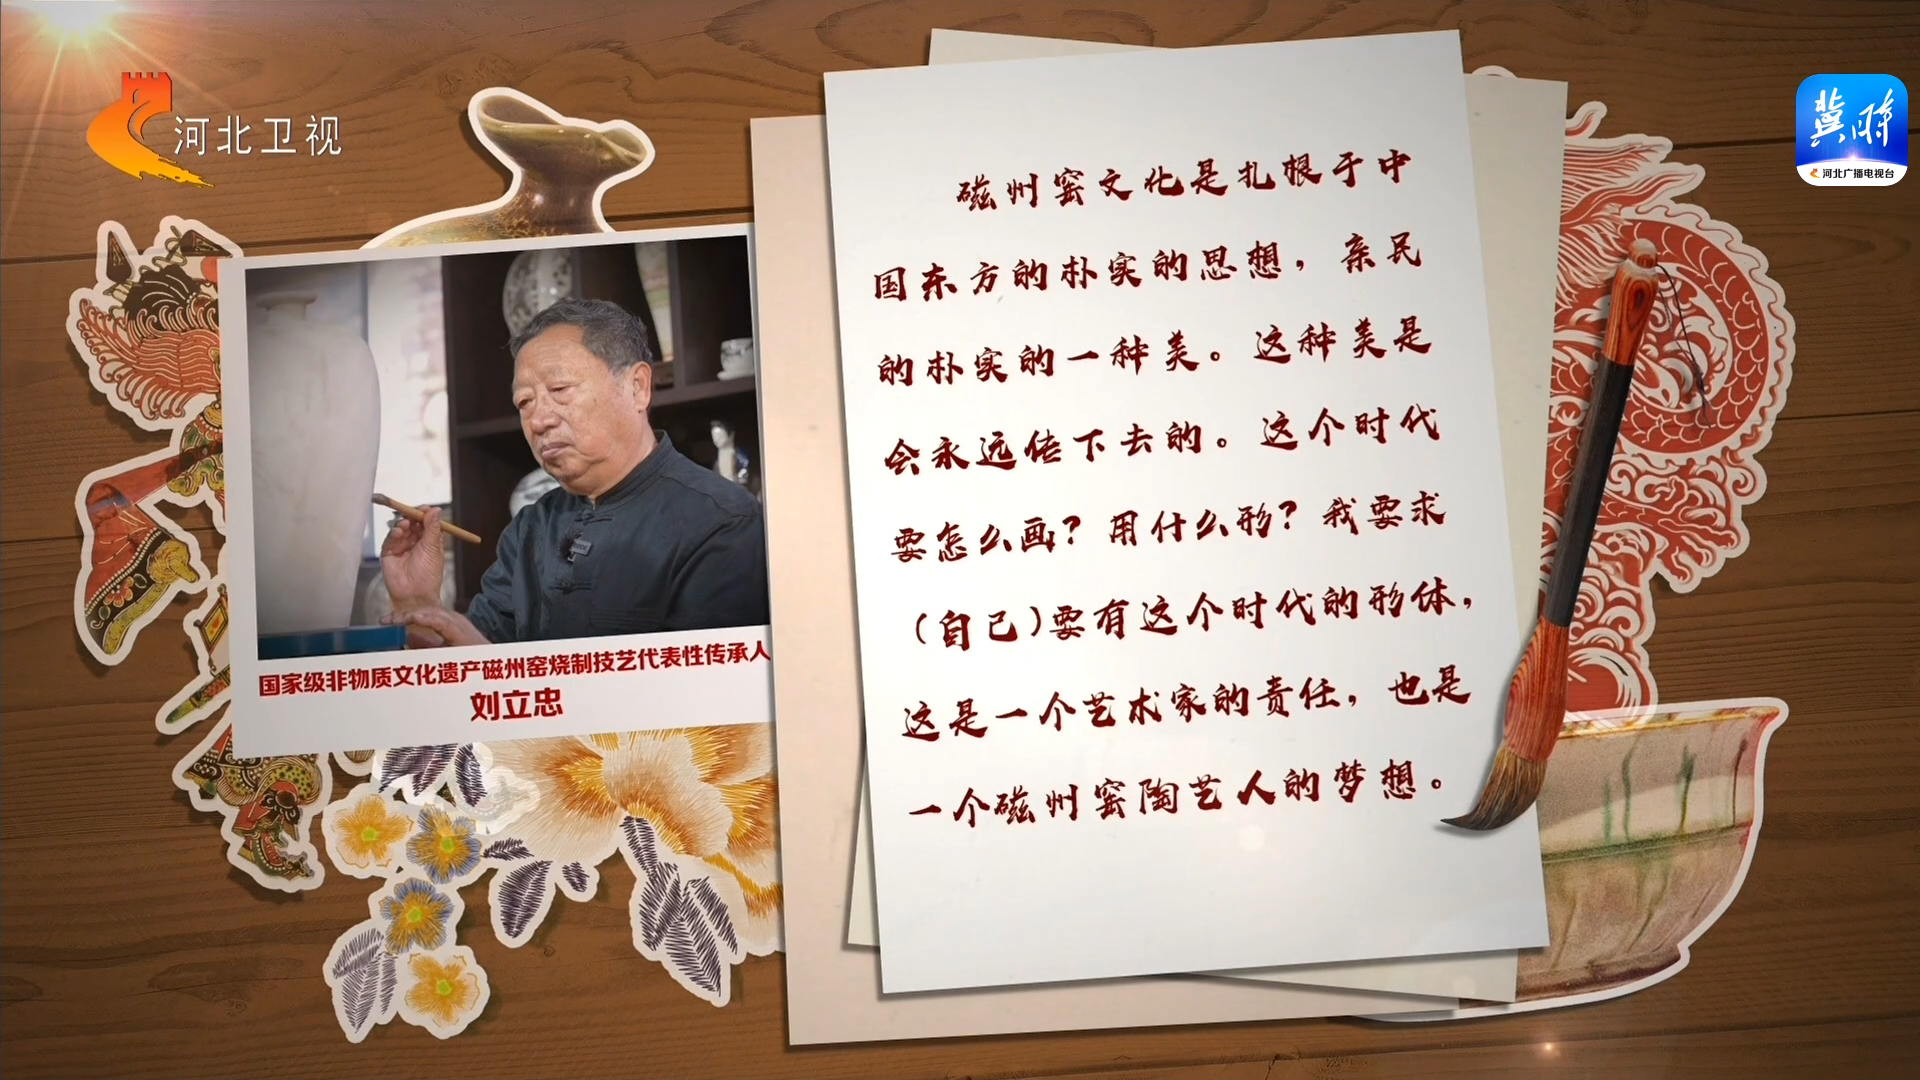 河北卫视
冀时
河北广播电视台
磁州窑文化是扎根于中
国东方的朴实的思想，亲民
的朴实的一种美。这种美是
会永远传下去的。这个时代
要怎么画？用什么形？我要求
（自己）要有这个时代的形体，
这是一个艺术家的责任，也是
一个磁州窑陶艺人的梦想。
国家级非物质文化遗产磁州窑烧制技艺代表性传承人
刘立忠